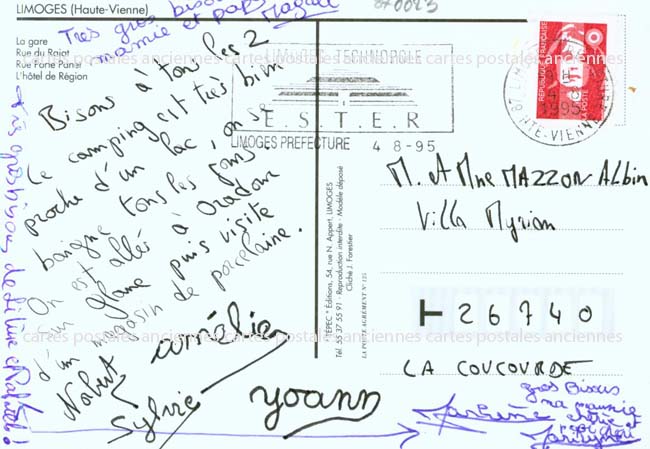 LIMOGES (Haute-Vienne)
La gare
Rue du Rajot
Rue Porte Panet
L'hôtel de Région
870023
Très gros bisous
mamie et papi
Bisous à tous les 2
Le camping est très bien
proche d'un lac, on se
baigne tous les jours
On est allés à Oradour
sur Glane puis visite
d'un magasin de porcelaine.
Norbert
Sylvie
yoann
Très gros bisous de
LIMOGES TECHNOPOLE
E.S.T.E.R
LIMOGES PREFECTURE 4 8-95
REPUBLIQUE FRANÇAISE
LA POSTE
HTE-VIENNE
"ÉPEC" Éditions, 54, rue N. Appert, LIMOGES
Tél. 55 37 55 91 - Reproduction interdite - Modèle déposé
Cliché J. Forestier
LA POSTE AGRÉMENT N° 125
M. et Mme MAZZON Albin
Villa Myriam
26740
LA COUCOURDE
gros Bisous
ma mamie
cartes postales anciennes cartes postales anciennes cartes postales anciennes
cartes postales anciennes cartes postales anciennes cartes postales anciennes